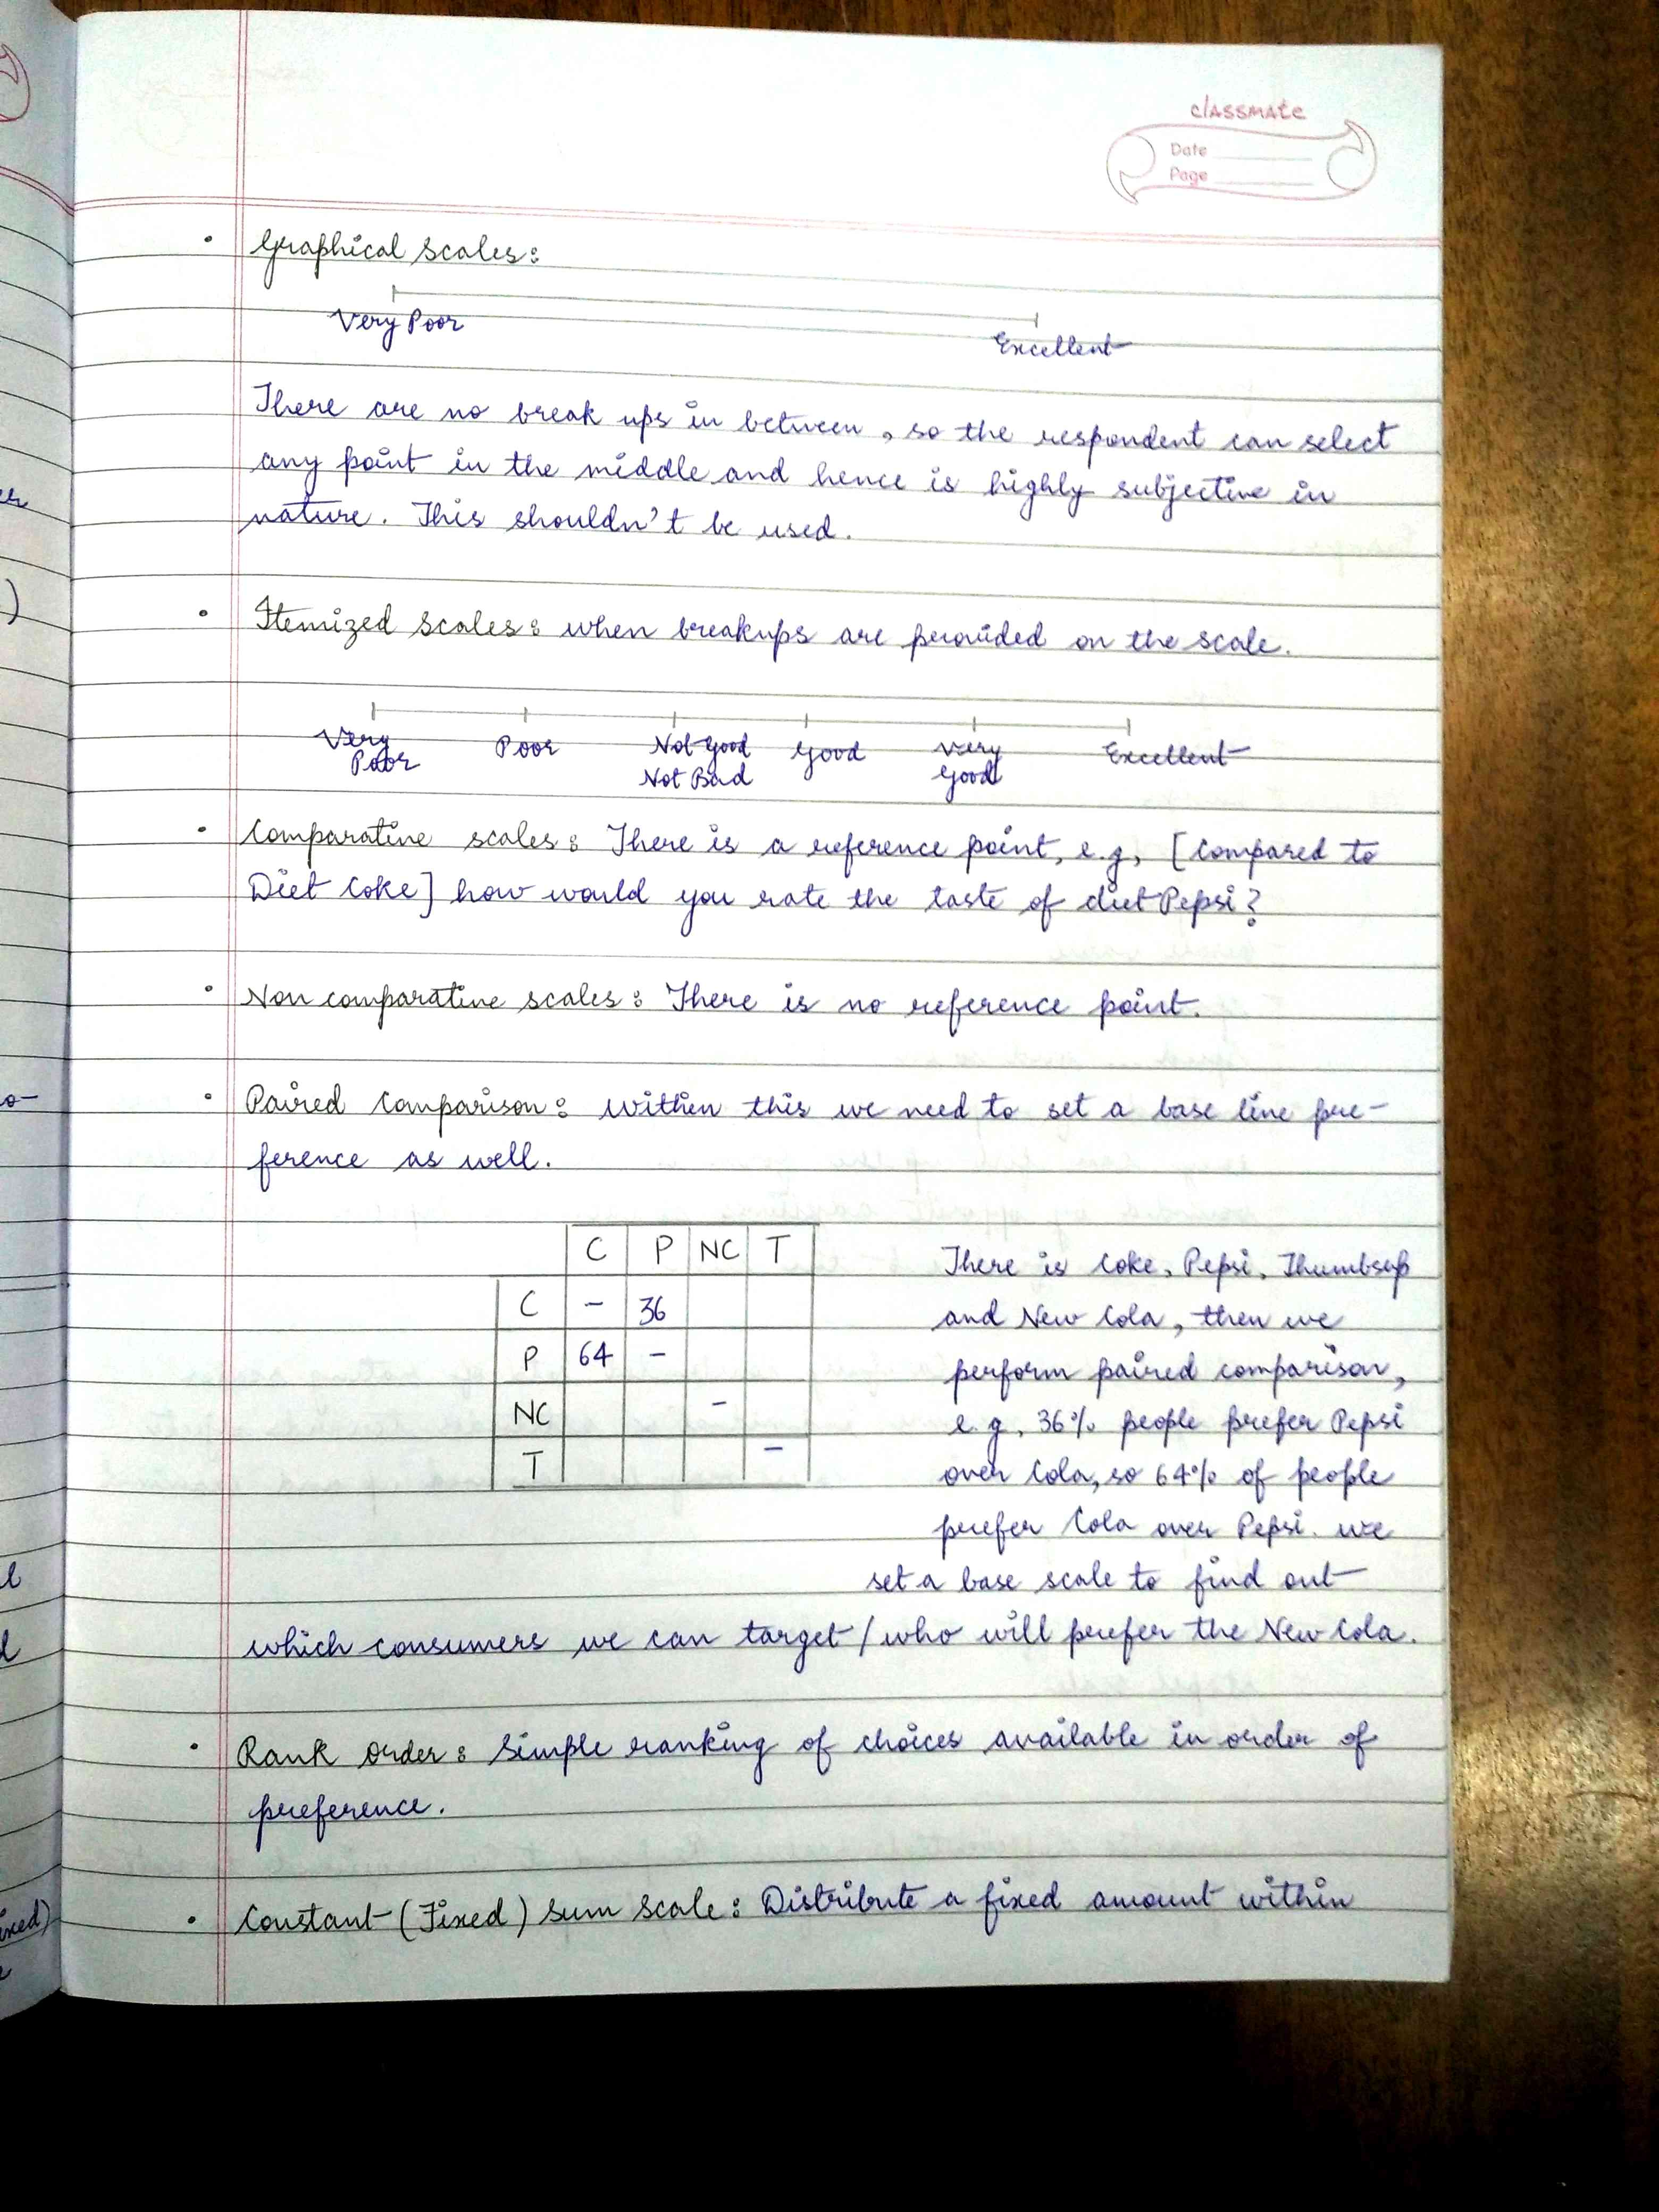 classmate
Date
Page
• Graphical Scales:
Very Poor Excellent
There are no break ups in between, so the respondent can select
any point in the middle and hence is highly subjective in
nature. This shouldn't be used.
• Itemized Scales: when breakups are provided on the scale.
Very Poor Not Good Good Very Excellent
Poor Not Bad Good
• Comparative scales: There is a reference point, e.g, [Compared to
Diet Coke] how would you rate the taste of diet Pepsi?
• Non comparative scales: There is no reference point.
• Paired Comparison: within this we need to set a base line pre-
ference as well.
C P NC T
C - 36
P 64 -
NC -
T -
There is Coke, Pepsi, Thumbsup
and New Cola, then we
perform paired comparison,
e.g, 36% people prefer Pepsi
over Cola, so 64% of people
prefer Cola over Pepsi. we
set a base scale to find out
which consumers we can target / who will prefer the New Cola.
• Rank Order: Simple ranking of choices available in order of
preference.
• Constant (Fixed) Sum Scale: Distribute a fixed amount within